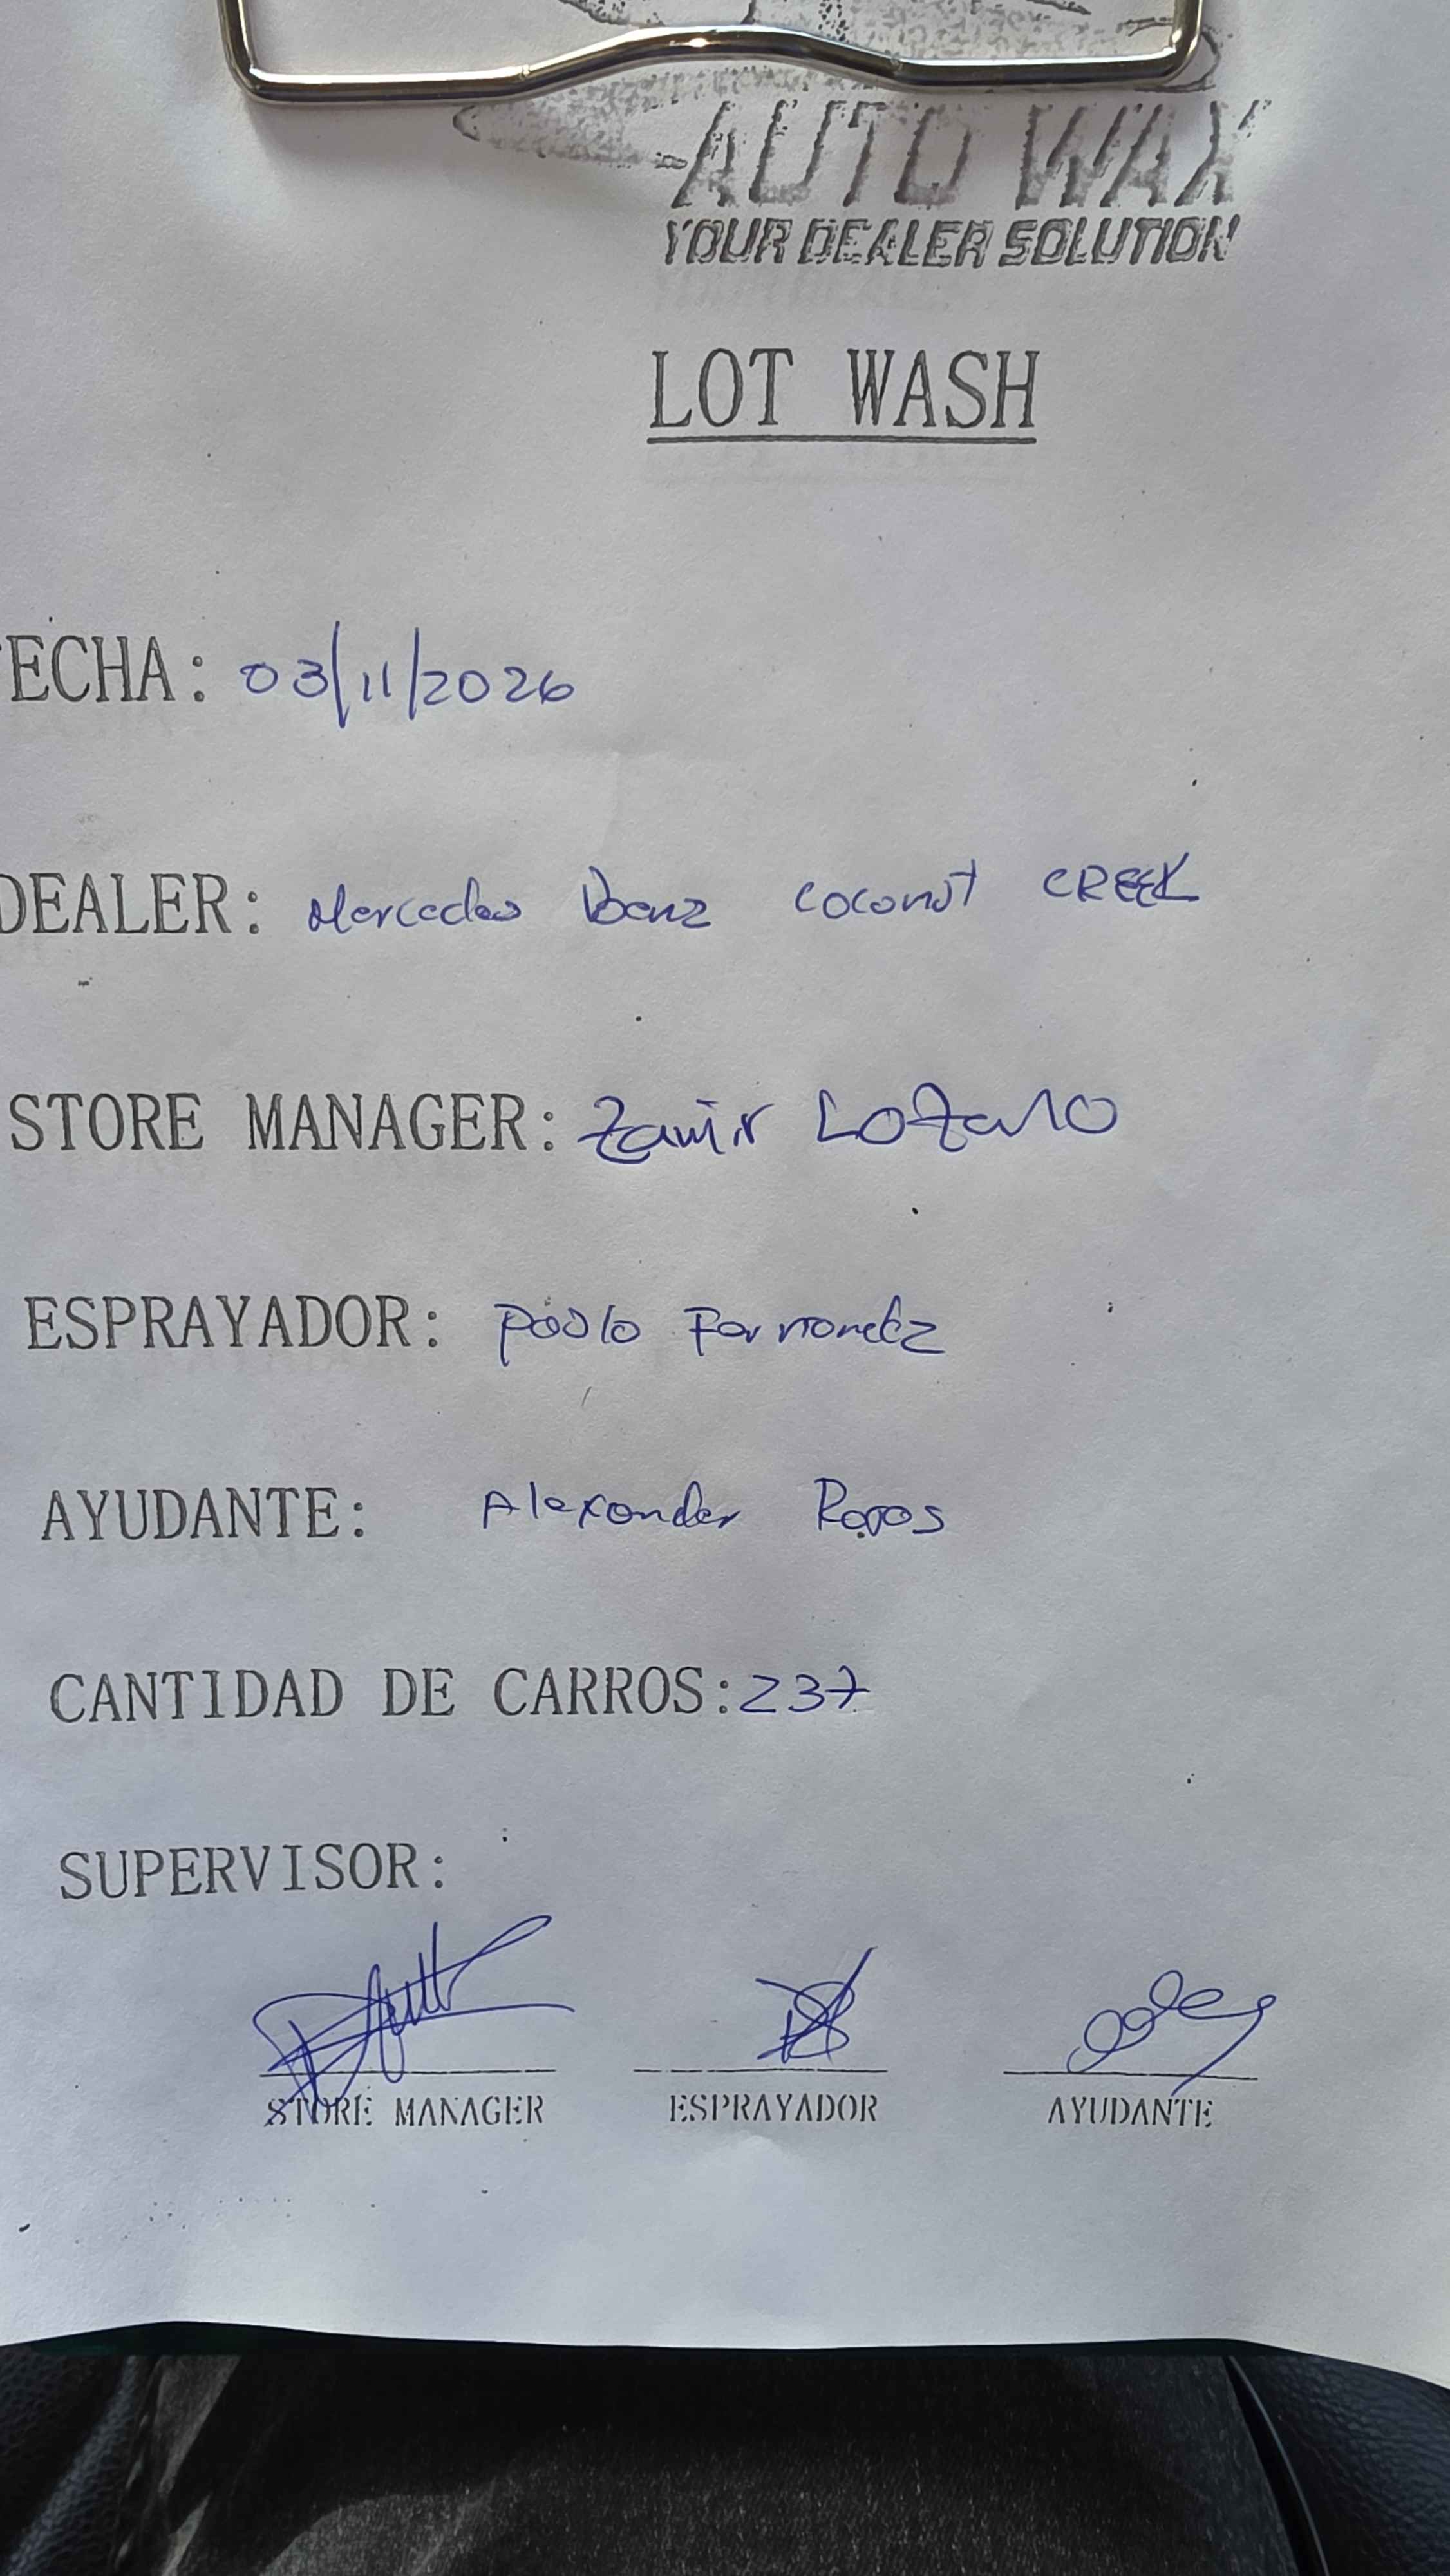 AUTO WAX
YOUR DEALER SOLUTION
LOT WASH
FECHA: 03/11/2026
DEALER: Mercedes Benz Coconut CREEK
STORE MANAGER: Zamir Lozano
ESPRAYADOR: Pablo Fernandez
AYUDANTE: Alexander Rojas
CANTIDAD DE CARROS: 237
SUPERVISOR:
STORE MANAGER ESPRAYADOR AYUDANTE